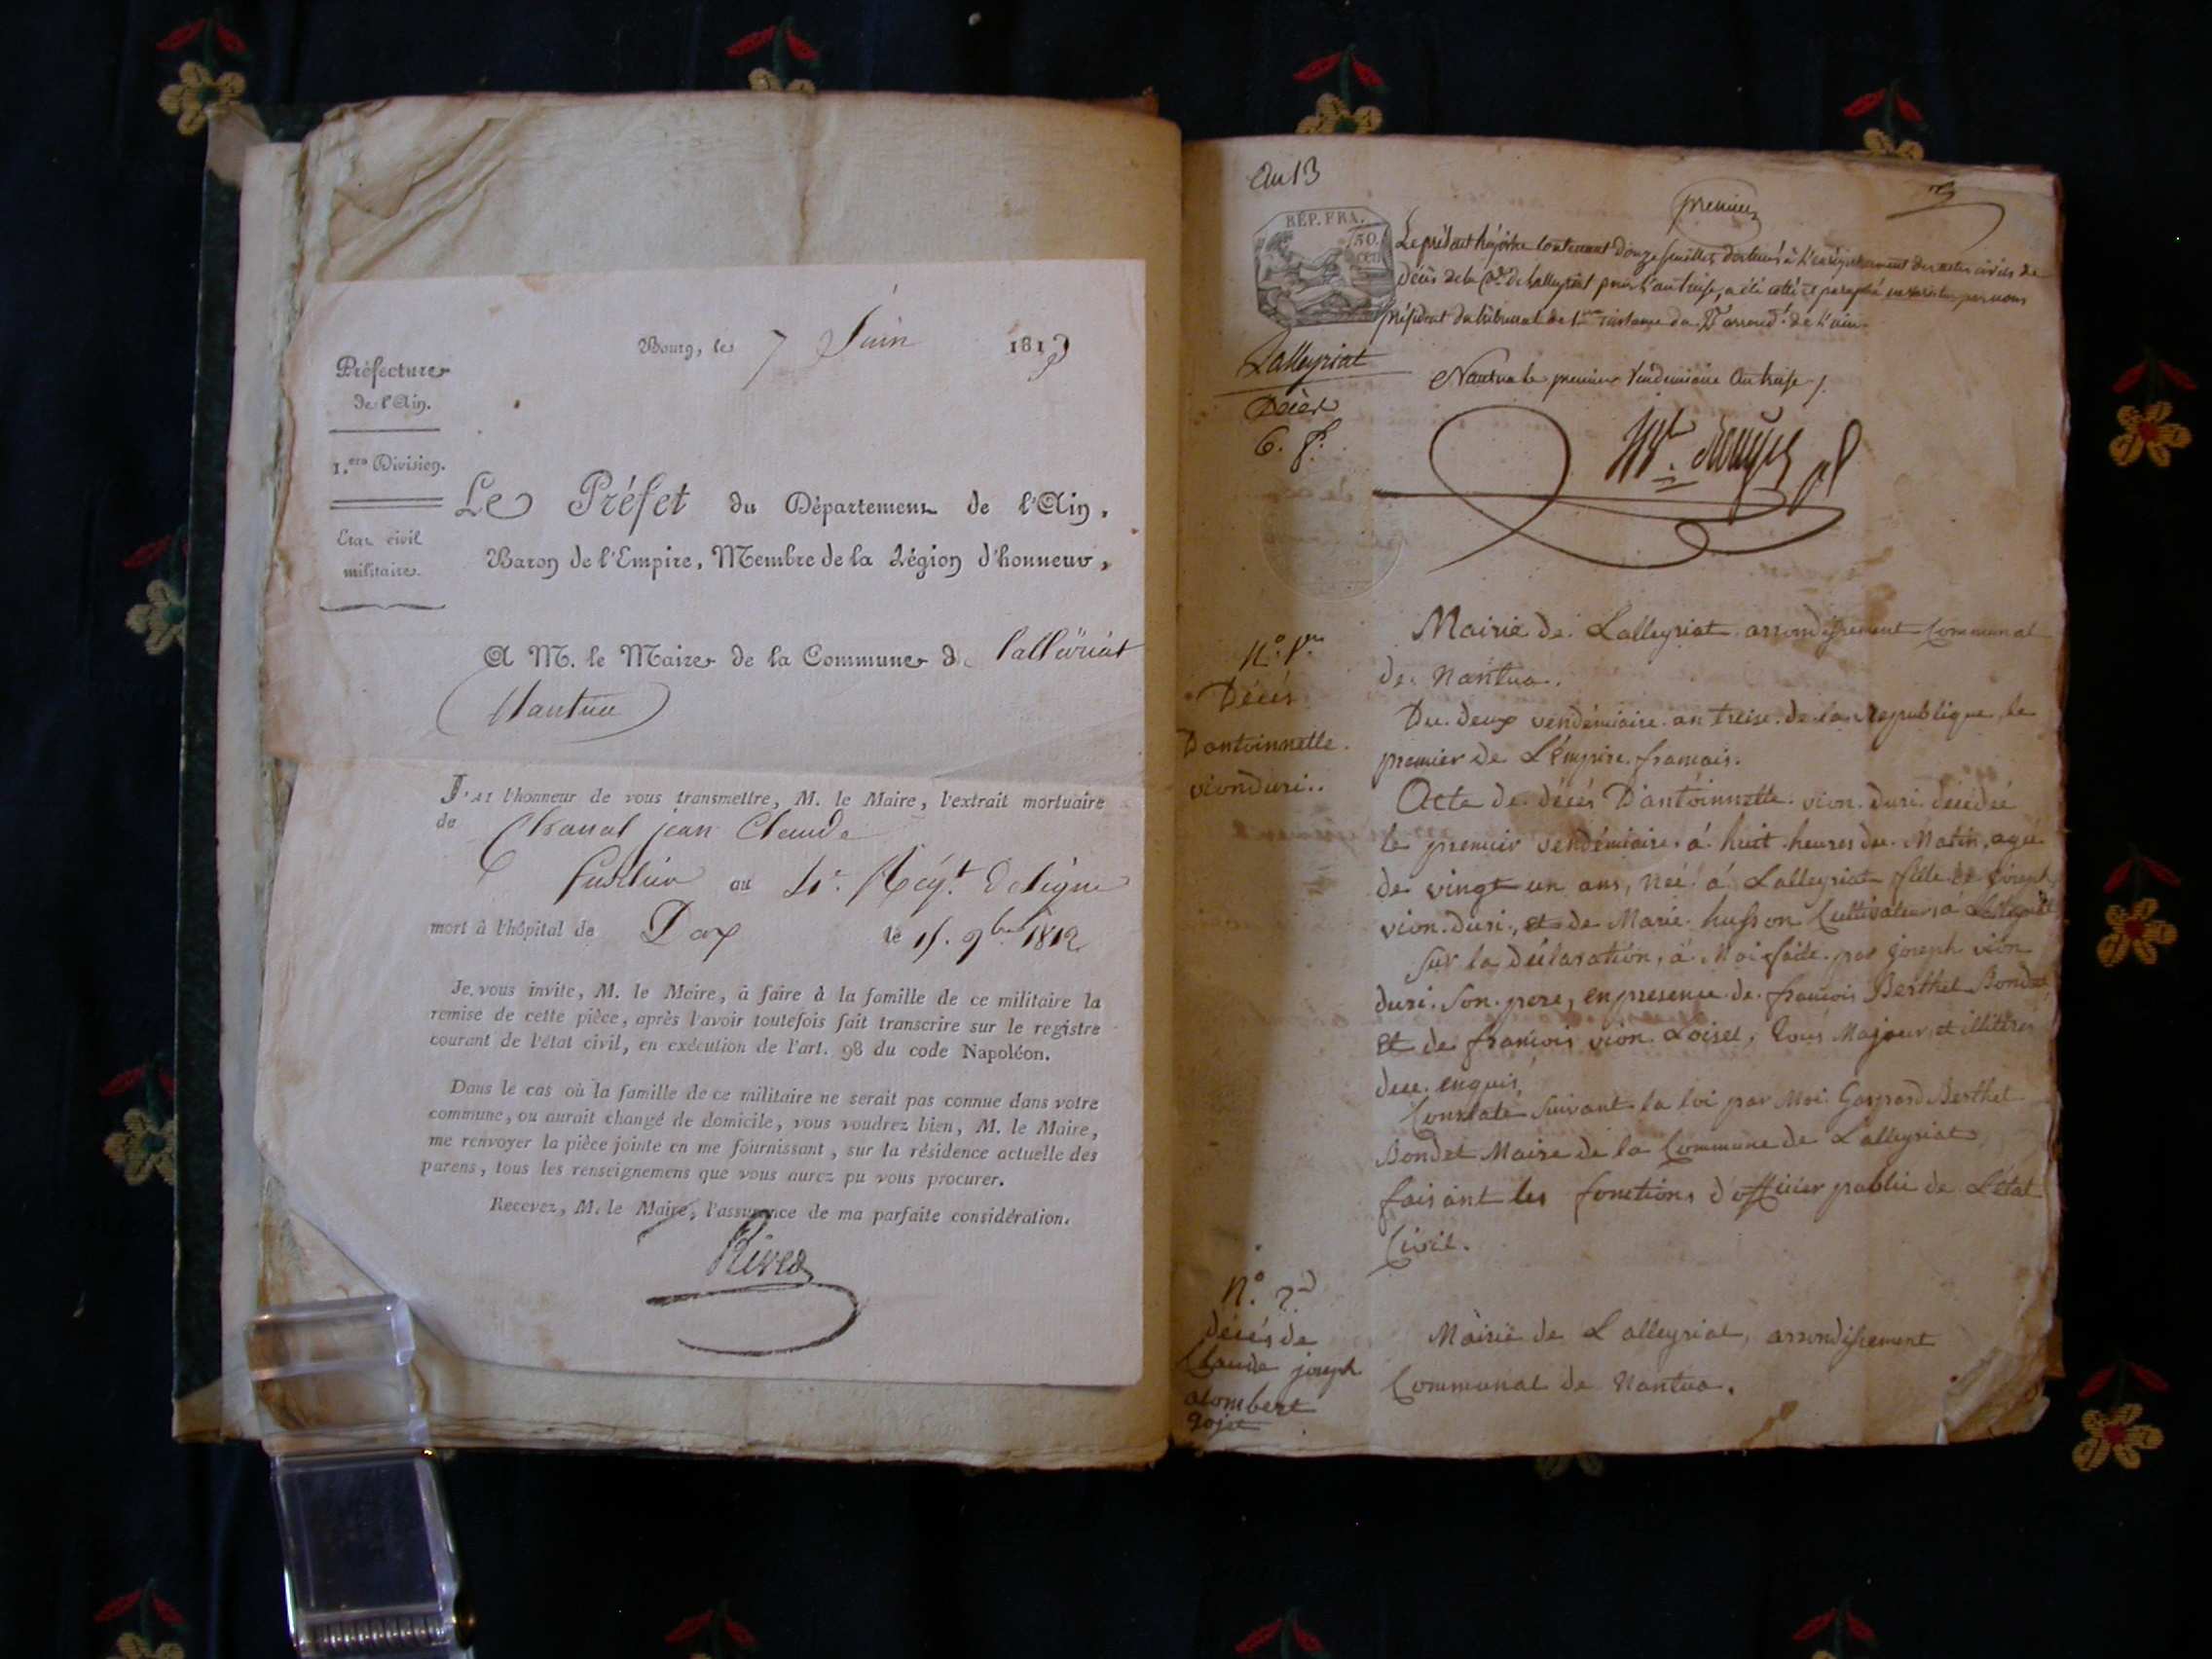 Bourg, le 7 Juin 1813
Préfecture
de l'Ain.
1.ere Division.
Etat civil
militaire.
Le Préfet du Département de l'Ain,
Baron de l'Empire, Membre de la Légion d'honneur,
A M. le Maire de la Commune d
Nantua
J'ai l'honneur de vous transmettre, M. le Maire, l'extrait mortuaire
de Chanal jean Claude
fusilier au Regt. De ligne
mort à l'hôpital de Dax le 9bre 1812
Je vous invite, M. le Maire, à faire à la famille de ce militaire la
remise de cette pièce, après l'avoir toutefois fait transcrire sur le registre
courant de l'état civil, en exécution de l'art. 98 du code Napoléon.
Dans le cas où la famille de ce militaire ne serait pas connue dans votre
commune, ou aurait changé de domicile, vous voudrez bien, M. le Maire,
me renvoyer la pièce jointe en me fournissant, sur la résidence actuelle des
parens, tous les renseignemens que vous aurez pu vous procurer.
Recevez, M. le Maire, l'assurance de ma parfaite considération.
Rivet
An 13
premier
RÉP. FRA.
50.
CEN
Le présent Régistre contenant Douze feuilles, destiné à l'enregistrement des actes civils de
Décès de la de Lalleyriat pour l'an treise, a été cotté et paraphé par nous
Président du tribunal de 1ere instance du arrond.t de l'ain.
Lalleyriat
Décès
6. f.
Nantua le premier Vendemiaire An treise
N.o 1.er
Décés
D'antoinnette
vion duri..
Mairie de Lalleyriat arrondissement Communal
de Nantua.
Du deux vendémiaire an treise de la Republique, le
premier de L'émpire francais.
Acte de décés D'antoinnette vion duri décédée
le premier vendémiaire á huit heures du Matin, agée
de vingt un ans, née á Lalleyriat fille de joseph
vion duri, et de Marie husson Cultivateurs á Lalleyriat
Sur la déclaration á Moi faite par joseph vion
duri son pere, en presence de francois Berthet Bondet
et de francois vion Loisel, tous Majeur et illitérés
de ce enquis
Constaté suivant la loi par Moi Gaspard Berthet
Bondet Maire de la Commune de Lalleyriat
faisant les fonctions d'officier public de L'état
Civil.
N.o 2.d
décés de
Claude joseph
alombert
gojet
Mairie de Lalleyriat, arrondissement
Communal de Nantua.